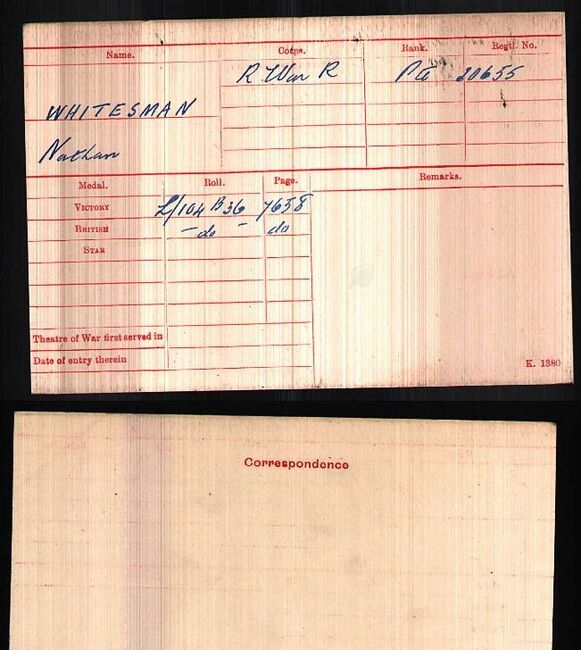 Name. Corps. Rank. Regtl. No.
R War R Pte 20655
WHITESMAN
Nathan
Medal. Roll. Page. Remarks.
VICTORY L/104 B36 7658
BRITISH - do - do
STAR
Theatre of War first served in
Date of entry therein
K. 1380
Correspondence